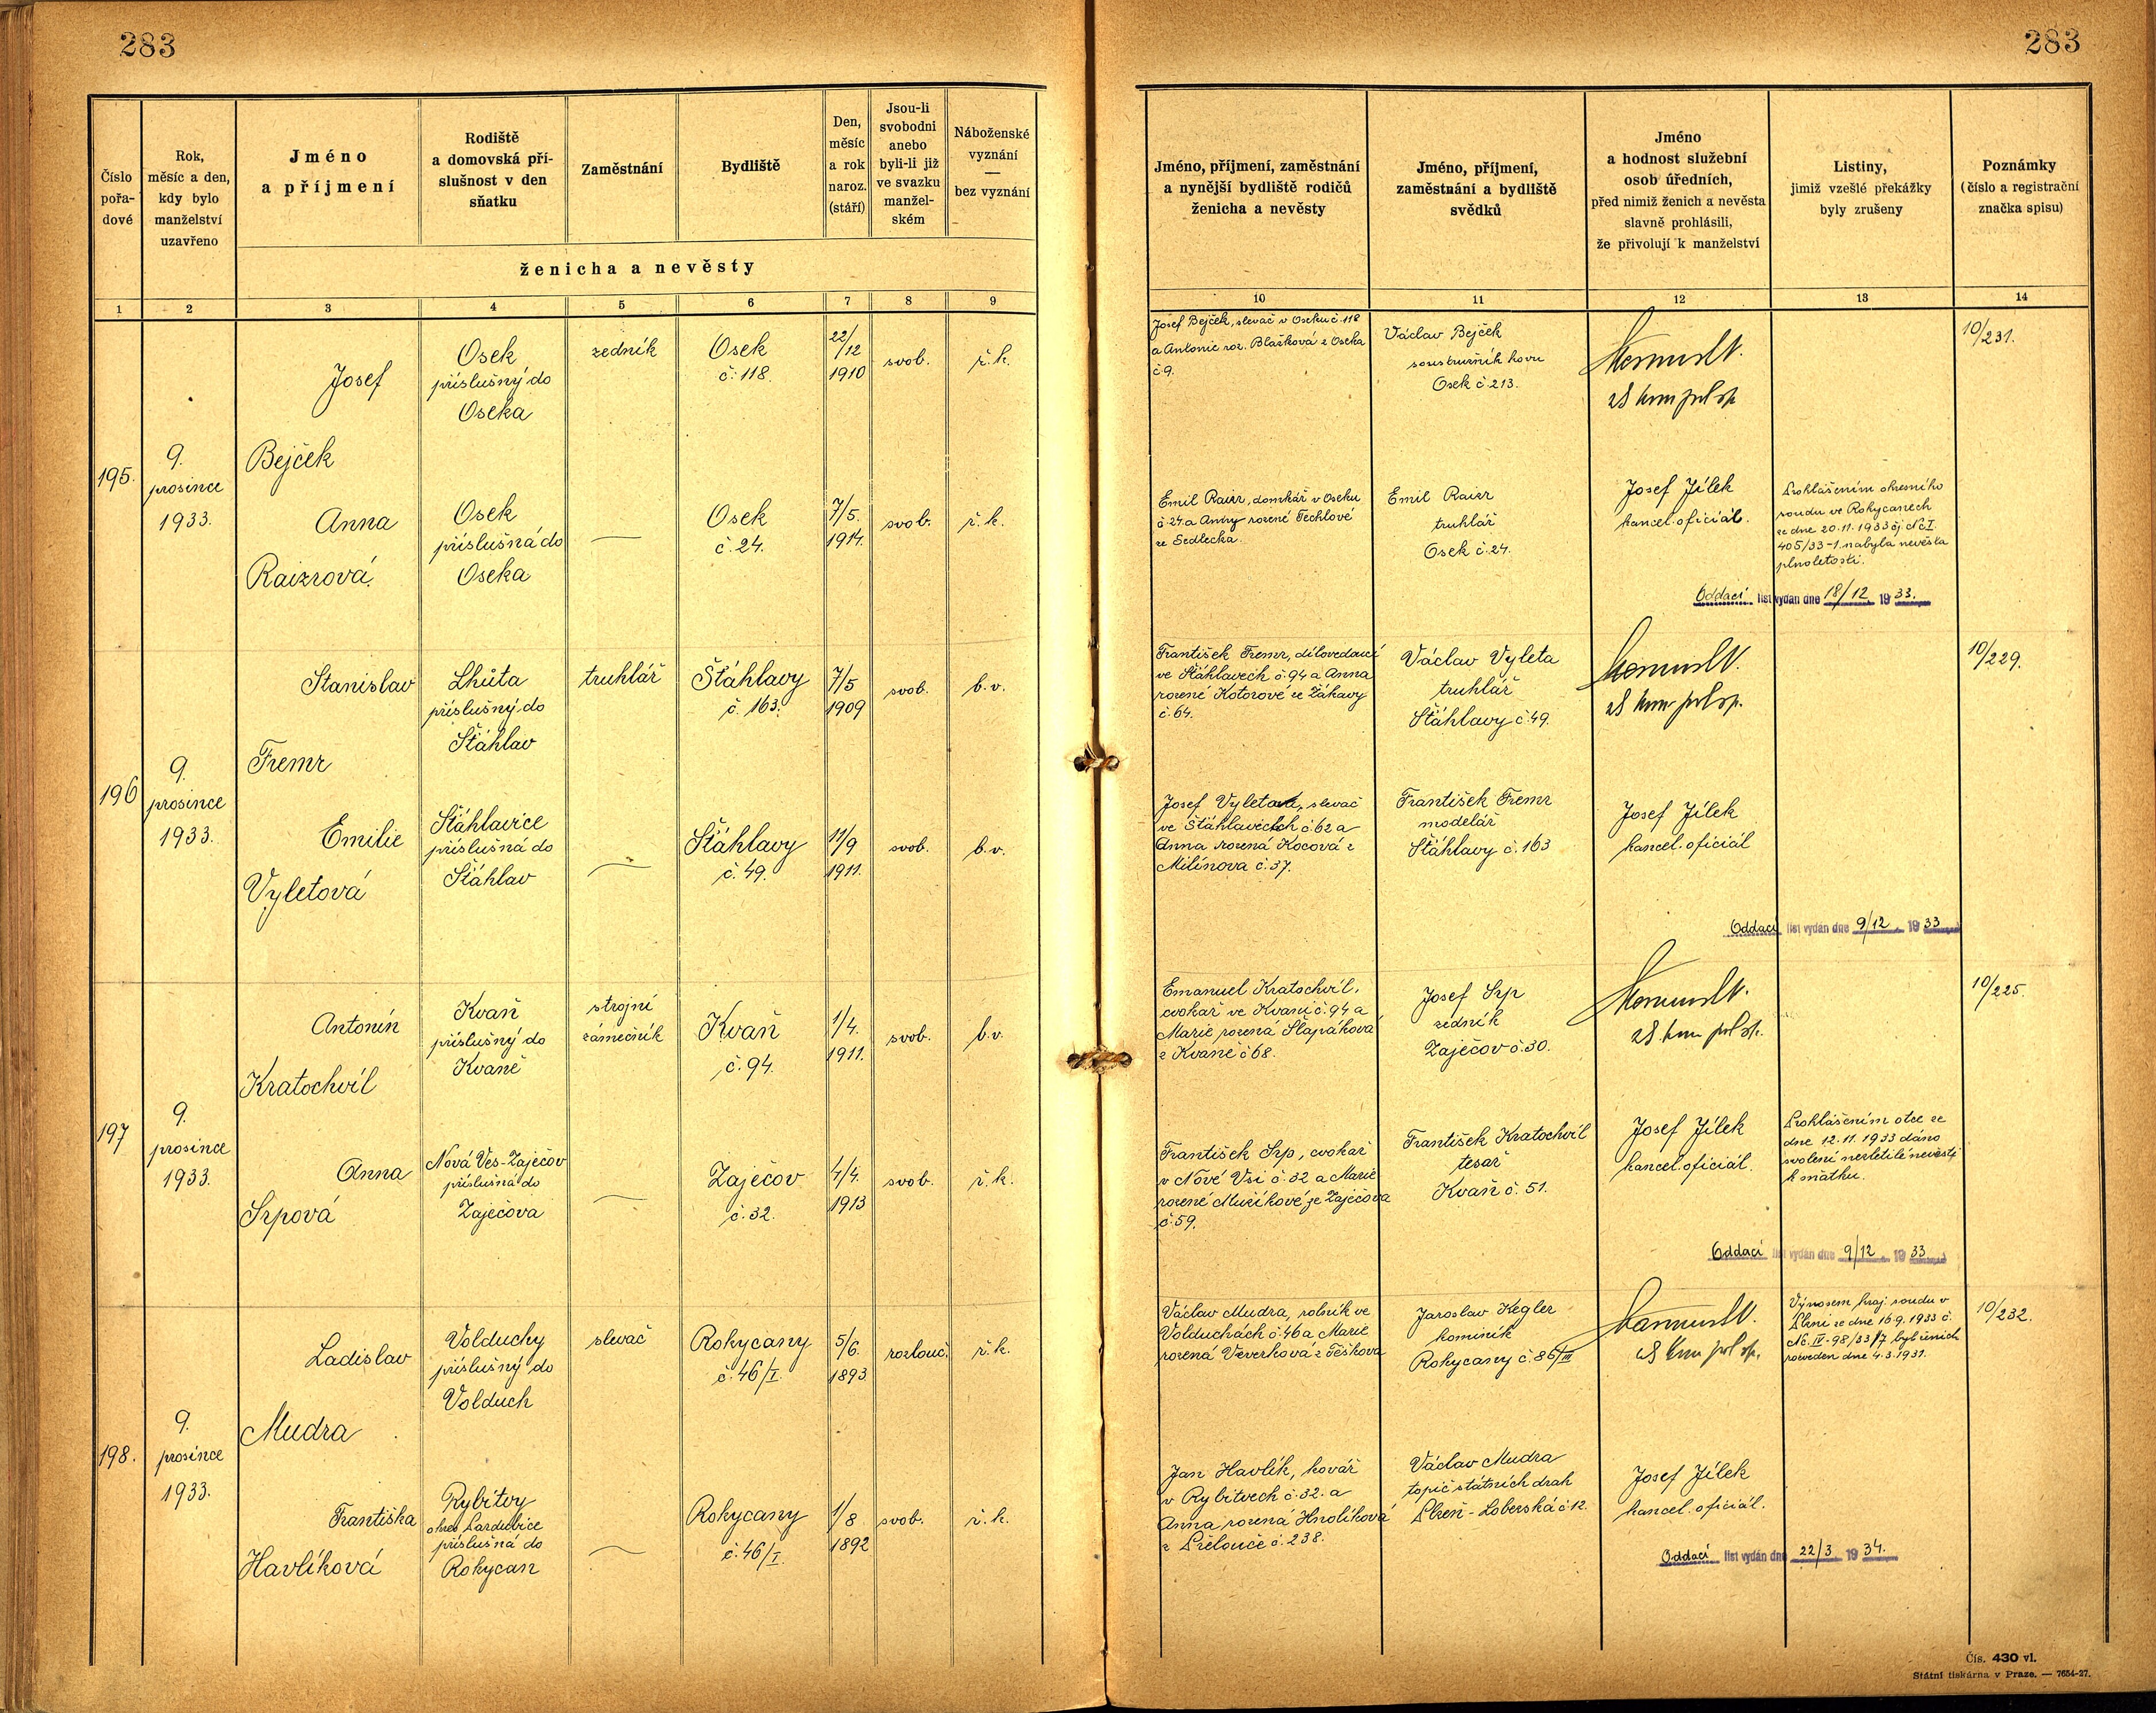 283
283
Číslo
pořa-
dové
Rok,
měsíc a den,
kdy bylo
manželství
uzavřeno
Jméno
a příjmení
Rodiště
a domovská pří-
slušnost v den
sňatku
Zaměstnání
Bydliště
Den,
měsíc
a rok
naroz.
(stáří)
Jsou-li
svobodni
anebo
byli-li již
ve svazku
manžel-
ském
Náboženské
vyznání
—
bez vyznání
ženicha a nevěsty
Jméno, příjmení, zaměstnání
a nynější bydliště rodičů
ženicha a nevěsty
Jméno, příjmení,
zaměstnání a bydliště
svědků
Jméno
a hodnost služební
osob úředních,
před nimiž ženich a nevěsta
slavně prohlásili,
že přivolují k manželství
Listiny,
jimiž vzešlé překážky
byly zrušeny
Poznámky
(číslo a registrační
značka spisu)
1 2 3 4 5 6 7 8 9
10 11 12 13 14
195.
9.
prosince
1933.
Josef
Bejček
Osek
příslušný do
Oseka
zedník
Osek
č. 118.
22/12
1910
svob.
ř.k.
Josef Bejček, slevač v Oseku č. 118
a Antonie roz. Blažková z Oseka
č 9.
Václav Bejček
soustružník kovu
Osek č. 213.
10/231.
Anna
Raizrová
Osek
příslušná do
Oseka
—
Osek
č. 24.
7/5.
1914.
svob.
ř.k.
Emil Raizr, domkář v Oseku
č. 24 a Anny rozené Techlové
ze Sedlecka.
Emil Raizr
truhlář
Osek č. 24.
Josef Jílek
kancel. oficiál.
Prohlášením okresního
soudu ve Rokycanech
ze dne 20.11.1933 čj. Nc I
405/33-1. nabyla nevěsta
plnoletosti.
Oddací list vydán dne 18/12 1933.
196
9.
prosince
1933.
Stanislav
Fremr
Lhůta
příslušný do
Šťáhlav
truhlář
Šťáhlavy
č. 163.
7/5
1909
svob.
b.v.
František Fremr, dílovedoucí
ve Šťáhlavech č. 94 a Anna
rozené Kotorové ze Žákavy
č. 64.
Václav Vyleta
truhlář
Šťáhlavy č. 49.
10/229.
Emilie
Vyletová
Šťáhlavice
příslušná do
Šťáhlav
—
Šťáhlavy
č. 49.
11/9
1911.
svob.
b.v.
Josef Vyleta, slevač
ve Šťáhlavicích č 62 a
Anna rozená Kocová z
Milínova č. 37.
František Fremr
modelář
Šťáhlavy č. 163
Josef Jílek
kancel. oficiál
Oddací list vydán dne 9/12 1933
197
9.
prosince
1933.
Antonín
Kratochvíl
Kvaň
příslušný do
Kvaně
strojní
zámečník
Kvaň
č. 94.
1/4.
1911.
svob.
b.v.
Emanuel Kratochvíl,
cvokař ve Kvani č. 94 a
Marie rozená Šlapáková
z Kvaně č 68.
Josef Srp
zedník
Zaječov č. 30.
10/225.
Anna
Srpová
Nová Ves-Zaječov
příslušná do
Zaječova
—
Zaječov
č. 32.
4/4.
1913
svob.
ř.k.
František Srp, cvokař
v Nové Vsi č. 32 a Marie
rozené Mužíkové ze Zaječova
č. 59.
František Kratochvíl
tesař
Kvaň č. 51.
Josef Jílek
kancel. oficiál.
Prohlášením otce ze
dne 12.11.1933 dáno
svolení nezletilé nevěstě
k sňatku.
Oddací list vydán dne 9/12 1933
198.
9.
prosince
1933.
Ladislav
Mudra
Volduchy
příslušný do
Volduch
slevač
Rokycany
č. 46/I.
5/6.
1893
rozlouč.
ř.k.
Václav Mudra, rolník ve
Volduchách č. 46 a Marie
rozená Veverková z Těškova
Jaroslav Kegler
kominík
Rokycany č. 86/III
Výnosem kraj. soudu v
Plzni ze dne 16.9.1933 č.
Nc. IV-98/33/7 byl ženich
rozveden dne 4.3.1931.
10/232.
Františka
Havlíková
Rybitvy
okres Pardubice
příslušná do
Rokycan
—
Rokycany
č. 46/I.
1/8
1892
svob.
ř.k.
Jan Havlík, kovář
v Rybitvech č. 32. a
Anna rozená Hnolíková
z Přelouče č. 238.
Václav Mudra
topič státních drah
Plzeň - Loberská č 12.
Josef Jílek
kancel. oficiál.
Oddací list vydán dne 22/3 1934.
Čís. 430 vl.
Státní tiskárna v Praze. — 7654-27.